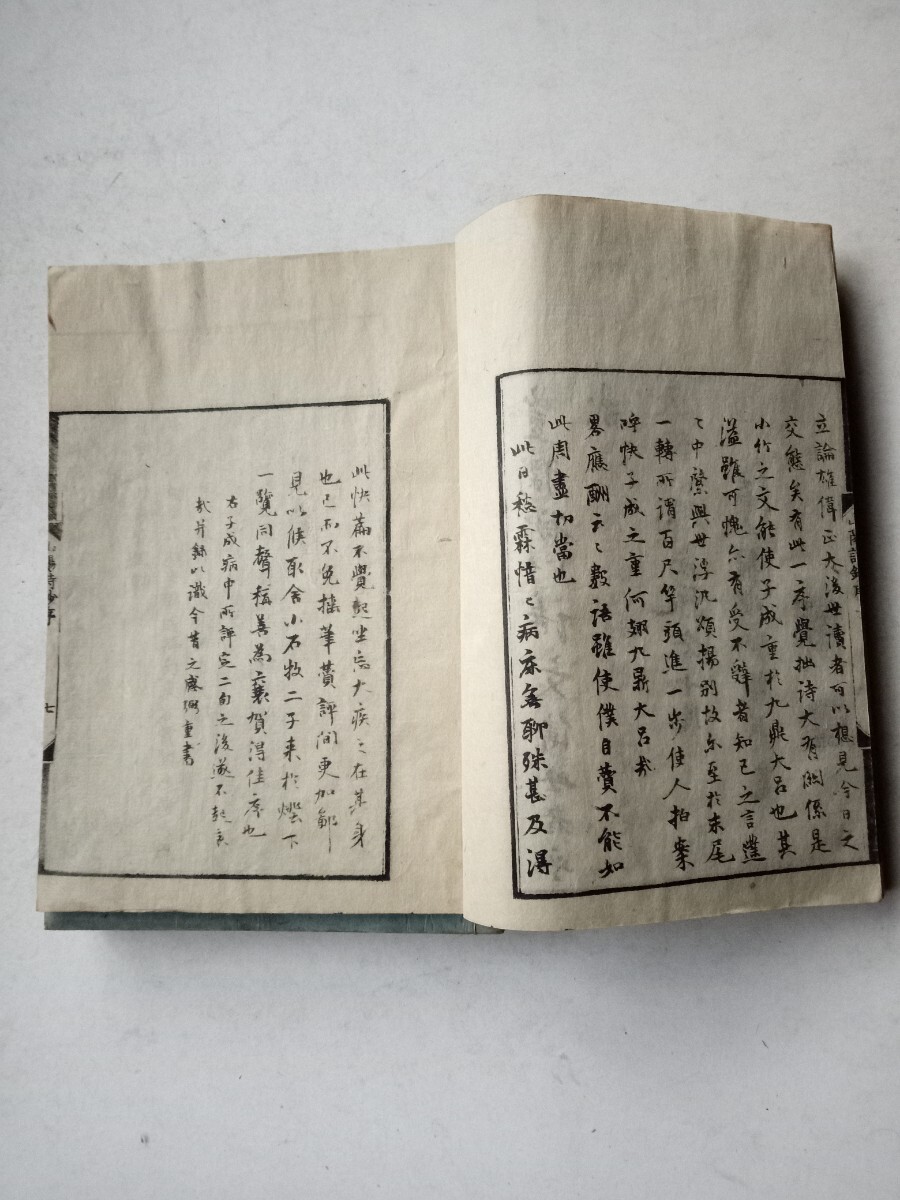 立論雄偉正大後世讀者可以想見今日之
交態矣有此一序覺拙詩大有關係是
小竹之文能使子成重於九鼎大呂也其
溢雖可愧亦有受不辭者知己之言蘧
々中槩與世浮汎頌揚別故尓至於末尾
一轉所謂百尺竿頭進一步使人拍案
呼快子成之重何翅九鼎大呂哉
畧應酬云々數語雖使僕自贊不能如
此周盡切當也
此日秋霖惜々病床無聊殊甚及得
此快篇不覺起坐忘大疾之在某身
也已而不免援筆贊評間更加
見以候取舍小石牧二子来於燈下
一覽同聲稱善為襄賀得佳序也
右子成病中所評定二旬之後遂不起哀
哉并錄以識今昔之感弼重書
山陽詩鈔序
七
山陽詩鈔